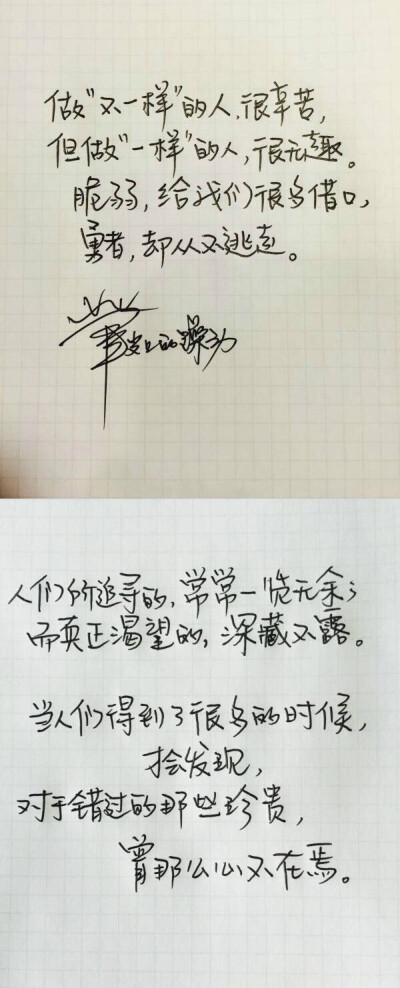 做"不一样"的人，很辛苦，
但做"一样"的人，很无趣。
脆弱，给我们很多借口，
勇者，却从不逃走。
笔尖上的躁动
人们所追寻的，常常一览无余；
而真正渴望的，深藏不露。
当人们得到了很多的时候，
才会发现，
对于错过的那些珍贵，
曾那么心不在焉。